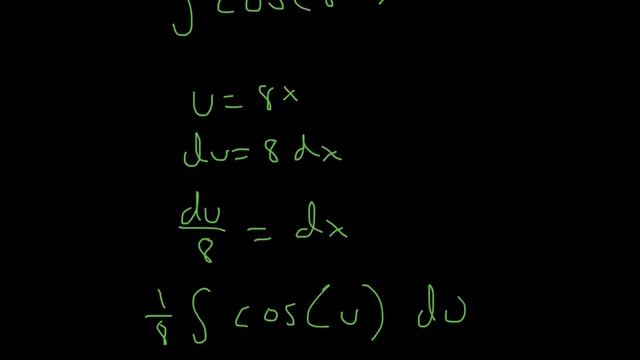 ∫ cos(8
u = 8x
du = 8 dx
du/8 = dx
1/8 ∫ cos(u) du